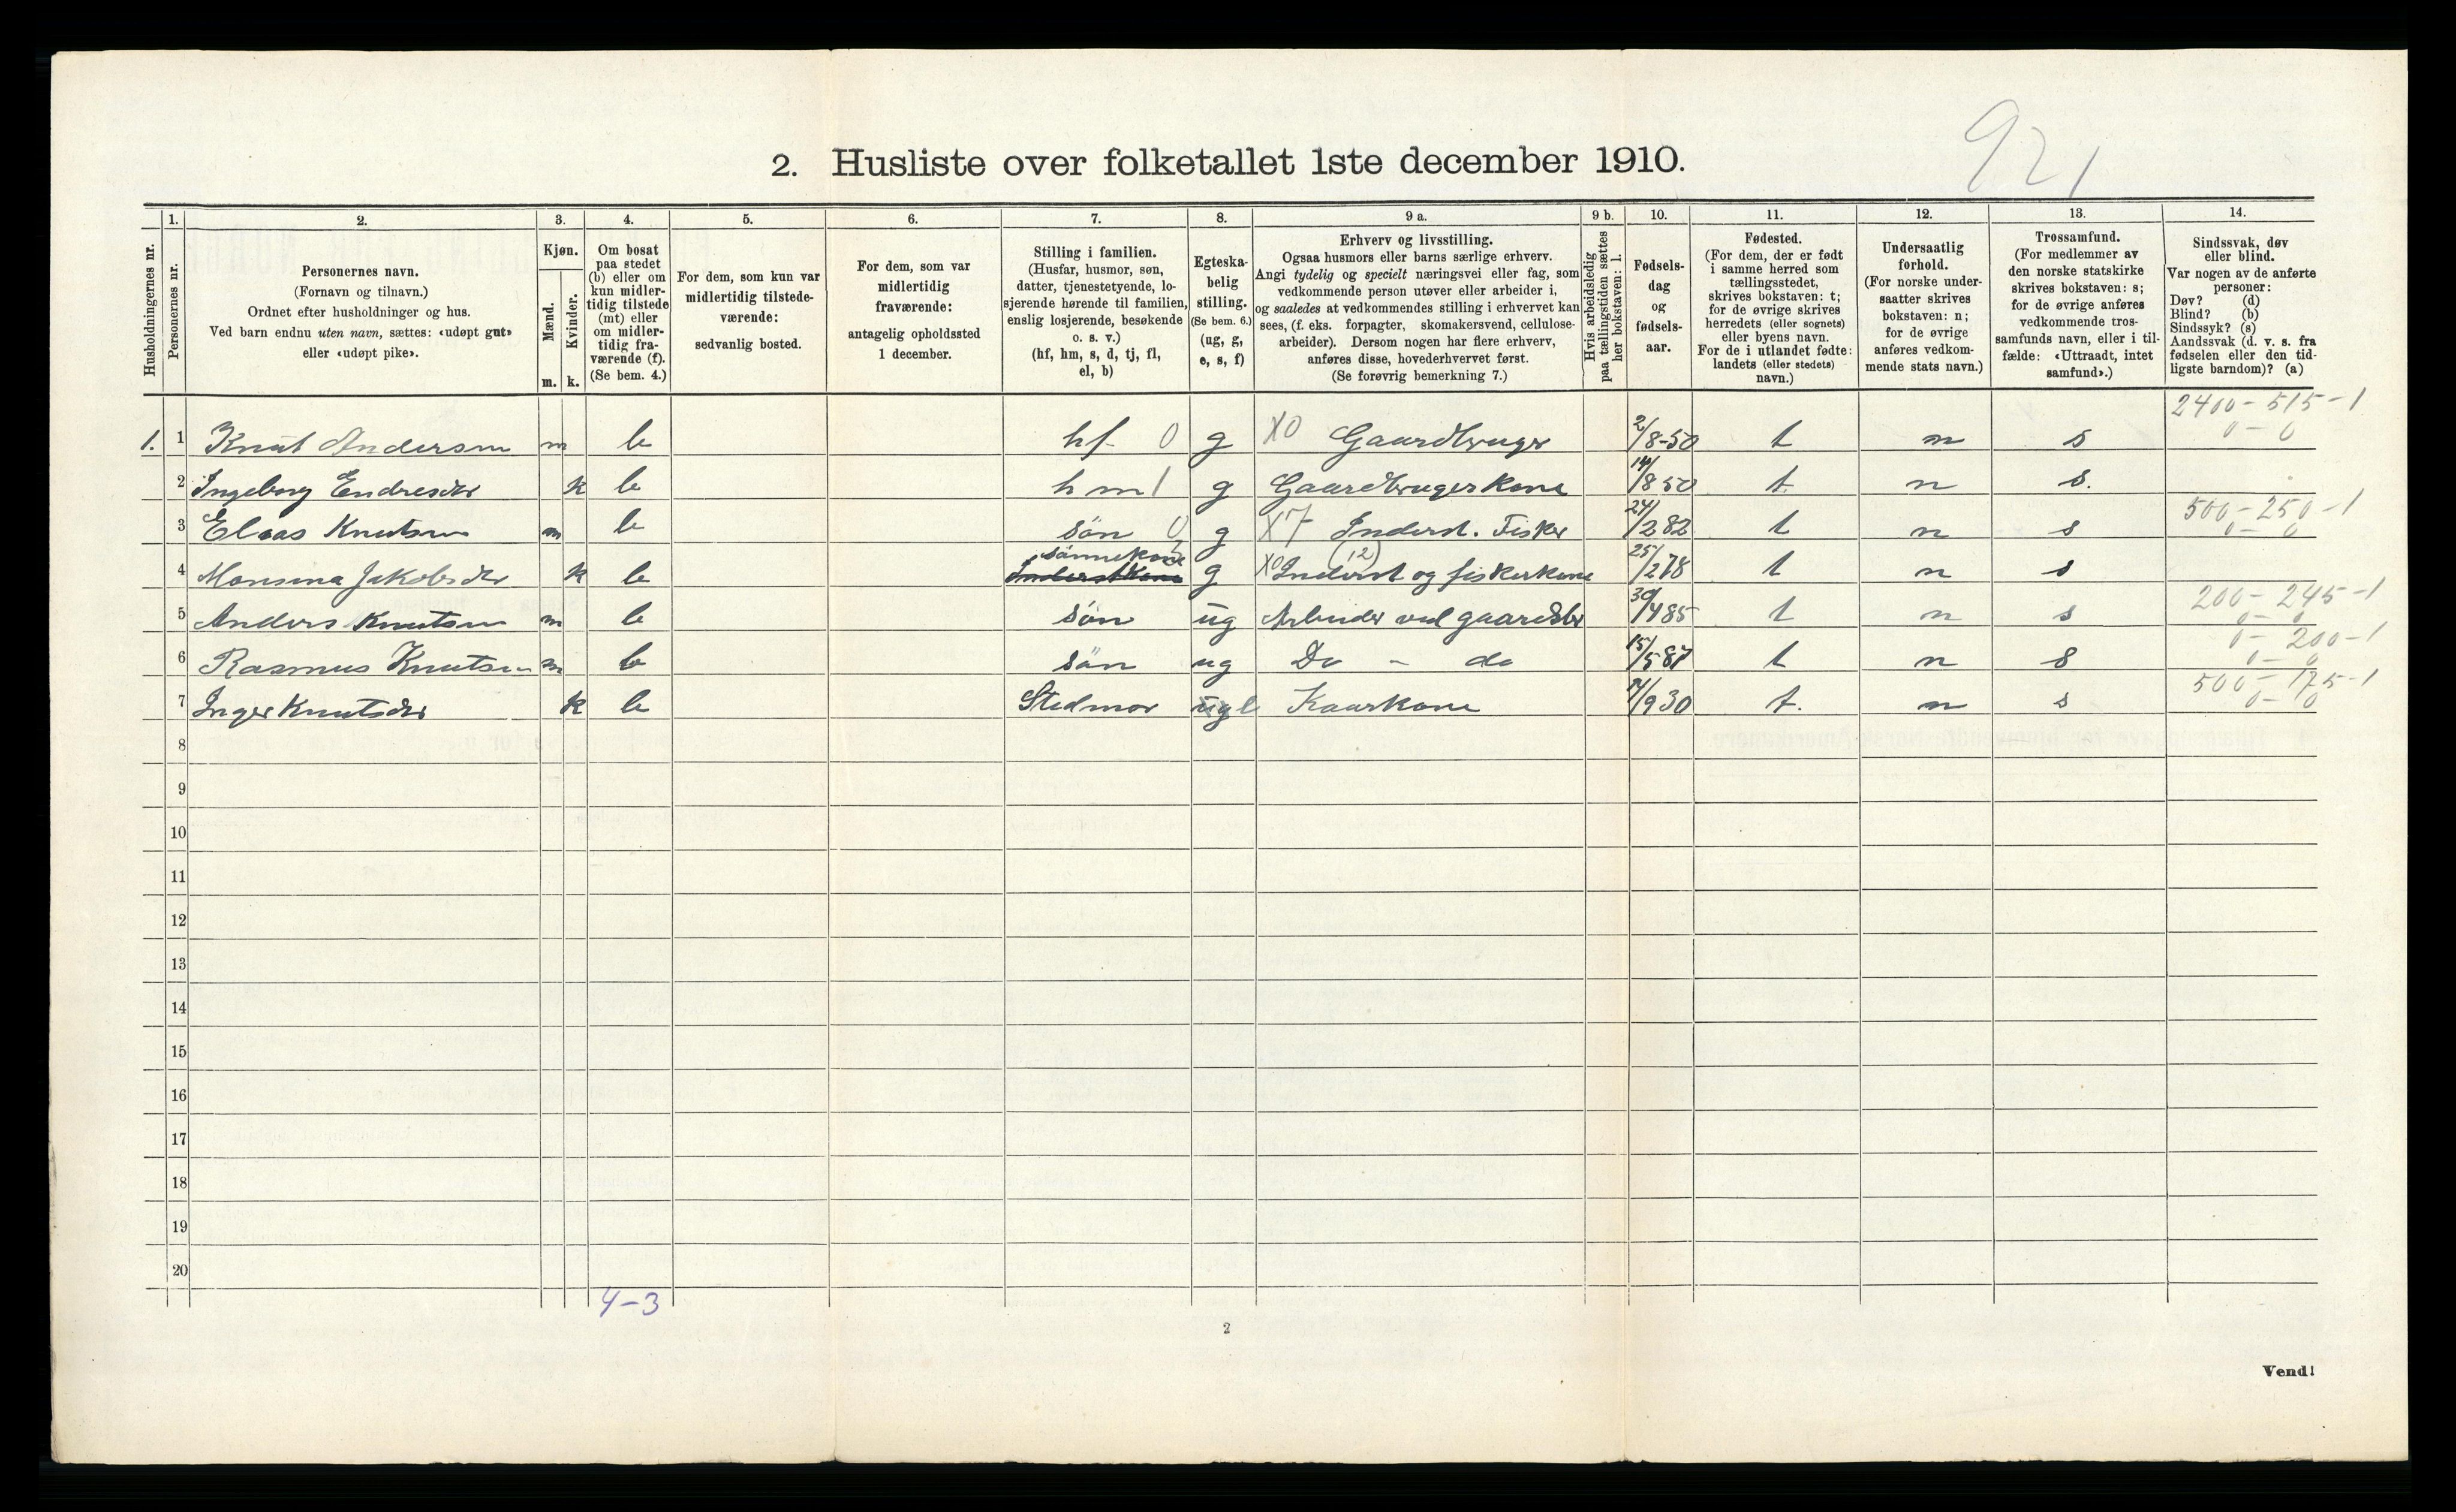 921
2. Husliste over folketallet 1ste december 1910.
1. 2. 3. 4. 5. 6. 7. 8. 9 a. 9 b. 10. 11. 12. 13. 14.
Husholdningernes nr.
Personernes nr.
Personernes navn.
(Fornavn og tilnavn.)
Ordnet efter husholdninger og hus.
Ved barn endnu uten navn, sættes: «udøpt gut»
eller «udøpt pike».
Kjøn.
Mænd.
Kvinder.
m. k.
Om bosat
paa stedet
(b) eller om
kun midler-
tidig tilstede
(mt) eller
om midler-
tidig fra-
værende (f).
(Se bem. 4.)
For dem, som kun var
midlertidig tilstede-
værende:
sedvanlig bosted.
For dem, som var
midlertidig
fraværende:
antagelig opholdssted
1 december.
Stilling i familien.
(Husfar, husmor, søn,
datter, tjenestetyende, lo-
sjerende hørende til familien,
enslig losjerende, besøkende
o. s. v.)
(hf, hm, s, d, tj, fl,
el, b)
Egteska-
belig
stilling.
(Se bem. 6.)
(ug, g,
e, s, f)
Erhverv og livsstilling.
Ogsaa husmors eller barns særlige erhverv.
Angi tydelig og specielt næringsvei eller fag, som
vedkommende person utøver eller arbeider i,
og saaledes at vedkommendes stilling i erhvervet kan
sees, (f. eks. forpagter, skomakersvend, cellulose-
arbeider). Dersom nogen har flere erhverv,
anføres disse, hovederhvervet først.
(Se forøvrig bemerkning 7.)
Hvis arbeidsledig
paa tællingstiden sættes
her bokstaven: l.
Fødsels-
dag
og
fødsels-
aar.
Fødested.
(For dem, der er født
i samme herred som
tællingsstedet,
skrives bokstaven: t;
for de øvrige skrives
herredets (eller sognets)
eller byens navn.
For de i utlandet fødte:
landets (eller stedets)
navn.)
Undersaatlig
forhold.
(For norske under-
saatter skrives
bokstaven: n;
for de øvrige
anføres vedkom-
mende stats navn.)
Trossamfund.
(For medlemmer av
den norske statskirke
skrives bokstaven: s;
for de øvrige anføres
vedkommende tros-
samfunds navn, eller i til-
fælde: «Uttraadt, intet
samfund».)
Sindssvak, døv
eller blind.
Var nogen av de anførte
personer:
Døv? (d)
Blind? (b)
Sindssyk? (s)
Aandssvak (d. v. s. fra
fødselen eller den tid-
ligste barndom)? (a)
2400 - 515 - 1
1. 1 Knut Andersen m b hf 0 g X0 Gaardbruger 2/8-50 t n s 0 - 0
2 Ingeborg Endresdtr k b hm 1 g Gaardbrugerkone 14/8 50 t. n s.
500 - 250 - 1
3 Elias Knutsen m b søn 0 g X7 Inderst. Fisker 24/2 82 t n s 0 - 0
sønnekone (12)
4 Monsina Jakobsdtr k b Inderstkone g X0 Inderst og fiskerkone 25/2 78 t n s
200 - 245 - 1
5 Anders Knutsen m b søn ug Arbeider ved gaardsbr 30/4 85 t n s 0 - 0
0 - 200 - 1
6 Rasmus Knutsen m b søn ug Do - do 15/5 87 t n s 0 - 0
500 - 175 - 1
7 Inger Knutsdtr k b Stedmor ug e Kaarkone 4/9 30 t. n s 0 - 0
8
9
10
11
12
13
14
15
16
17
18
19
20
4-3
2
Vend!